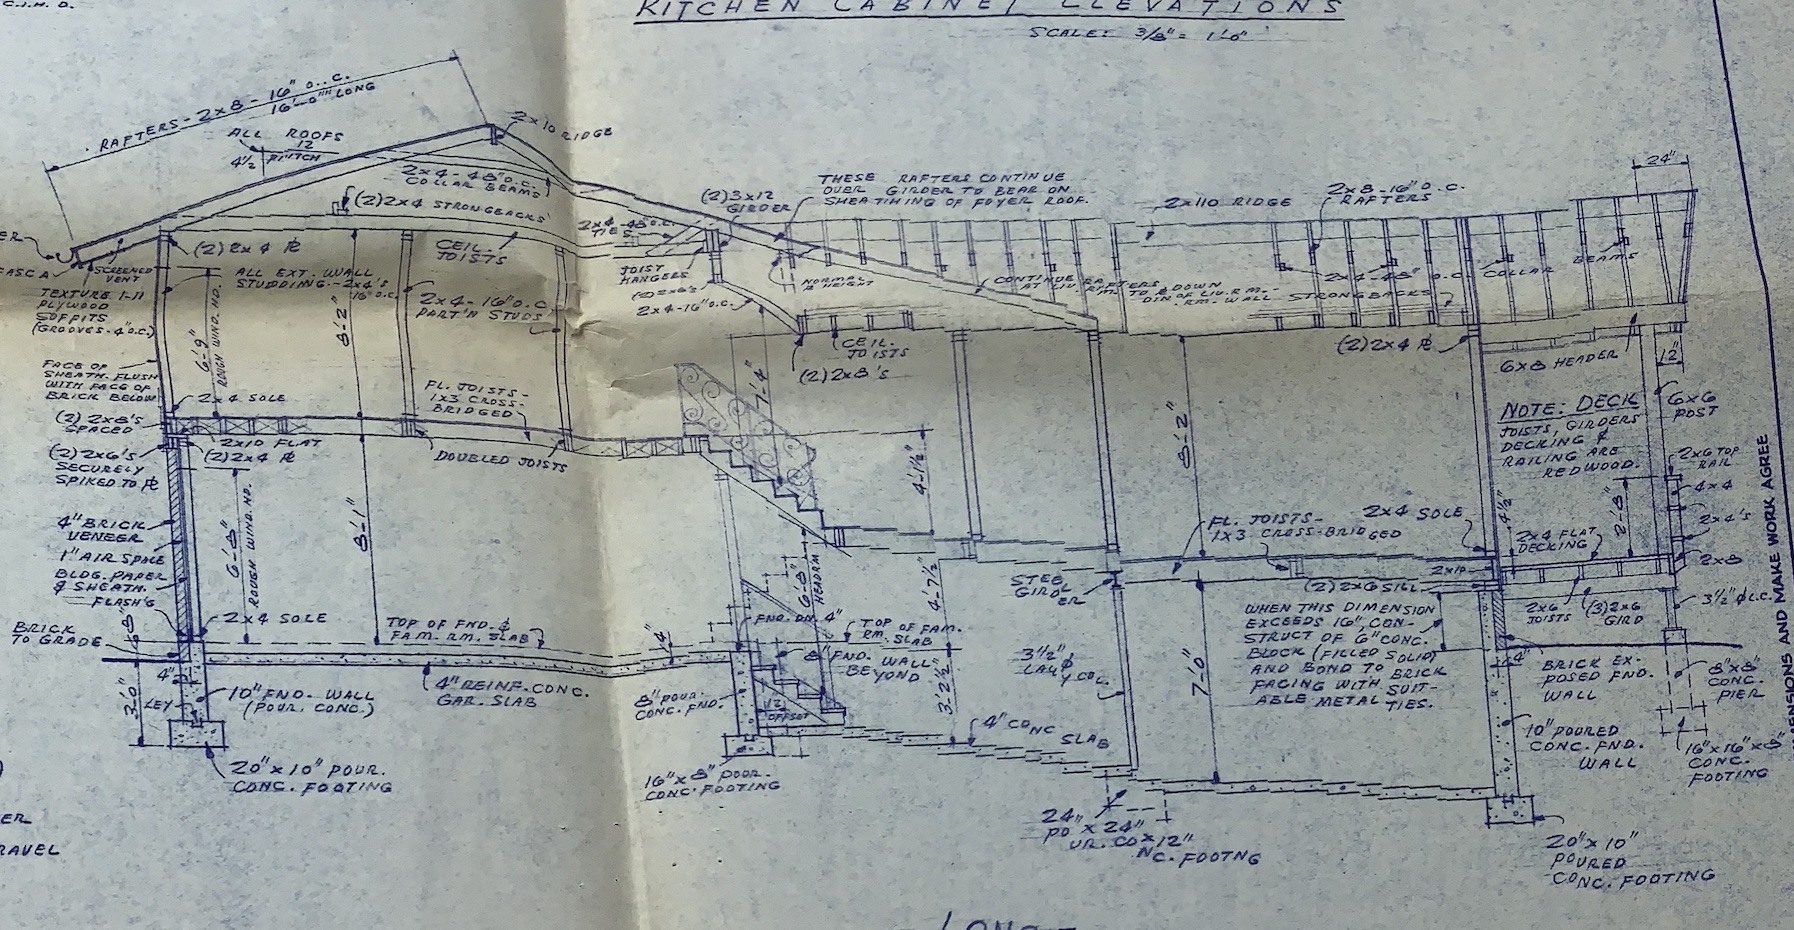 C.I.H.D.
KITCHEN CABINET ELEVATIONS
SCALE: 3/8" = 1'-0"
RAFTERS - 2x8 - 16" O.C.
16'-0" LONG
ALL ROOFS
12
4½ PITCH
2x10 RIDGE
2x4 - 48" O.C.
COLLAR BEAMS
(2) 2x4 STRONGBACKS
2x4-48" O.C.
TIES
(2) 3x12
GIRDER
THESE RAFTERS CONTINUE
OVER GIRDER TO BEAR ON
SHEATHING OF FOYER ROOF.
2x10 RIDGE
2x8-16" O.C.
RAFTERS
24"
(2) 2x4 PL
CEIL.
JOISTS
JOIST
HANGERS
(2) 2x6'S
2x4-16" O.C.
NORMAL
PL HEIGHT
CONTINUE RAFTERS DOWN
2x4-48" O.C. COLLAR BEAMS
RM. WALL STRONGBACKS
SCREENED
VENT
TEXTURE 1-11
PLYWOOD
SOFFITS
(GROOVES-4" O.C.)
ALL EXT. WALL
STUDDING-2x4'S
16" O.C.
6'-9"
ROUGH WIND. HD.
8'-2"
2x4-16" O.C.
PART'N STUDS
FACE OF
SHEATH. FLUSH
WITH FACE OF
BRICK BELOW
2x4 SOLE
FL. JOISTS-
1x3 CROSS-
BRIDGED
CEIL.
JOISTS
(2) 2x8'S
7'-4"
8'-2"
(2) 2x4 PL
6x8 HEADER
12"
NOTE: DECK
JOISTS, GIRDERS
DECKING &
RAILING ARE
REDWOOD.
6x6
POST
(2) 2x8'S
SPACED
2x10 FLAT
(2) 2x4 PL
(2) 2x6'S
SECURELY
SPIKED TO PL
DOUBLED JOISTS
4" BRICK
VENEER
1" AIR SPACE
BLDG. PAPER
& SHEATH.
FLASH'G
6'-8"
ROUGH WIND. HD.
8'-1"
4'-1½"
2x6 TOP
RAIL
4x4
2x4'S
2x8
2'-8"
4½"
FL. JOISTS-
1x3 CROSS-BRIDGED
2x4 SOLE
2x4 FLAT
DECKING
2x10
(2) 2x6 SILL
STEEL
GIRDER
6'-8"
HEADRM
4'-7½"
2x4 SOLE
BRICK
TO GRADE
8"
TOP OF FND. &
FAM. RM. SLAB
4"
FND. DN. 4"
TOP OF FAM.
RM. SLAB
8" FND. WALL
BEYOND
WHEN THIS DIMENSION
EXCEEDS 16", CON-
STRUCT OF 6" CONC.
BLOCK (FILLED SOLID)
AND BOND TO BRICK
FACING WITH SUIT-
ABLE METAL TIES.
2x6
JOISTS
(3) 2x6
GIRD
3½" Ø L.C.
4"
BRICK EX-
POSED FND.
WALL
8"x8"
CONC.
PIER
4"
3'-0"
10" FND-WALL
(POUR. CONC.)
4" REINF. CONC.
GAR. SLAB
8" POUR.
CONC. FND.
OFFSET
3'-2½"
3½" Ø
LALLY COL.
7'-0"
4" CONC SLAB
10" POURED
CONC. FND.
WALL
16"x16"x8"
CONC.
FOOTING
20"x10" POUR.
CONC. FOOTING
16"x8" POUR.
CONC. FOOTING
24" x 24" x 12"
POUR. CONC. FOOTNG
20"x10"
POURED
CONC. FOOTING
AND MAKE WORK AGREE